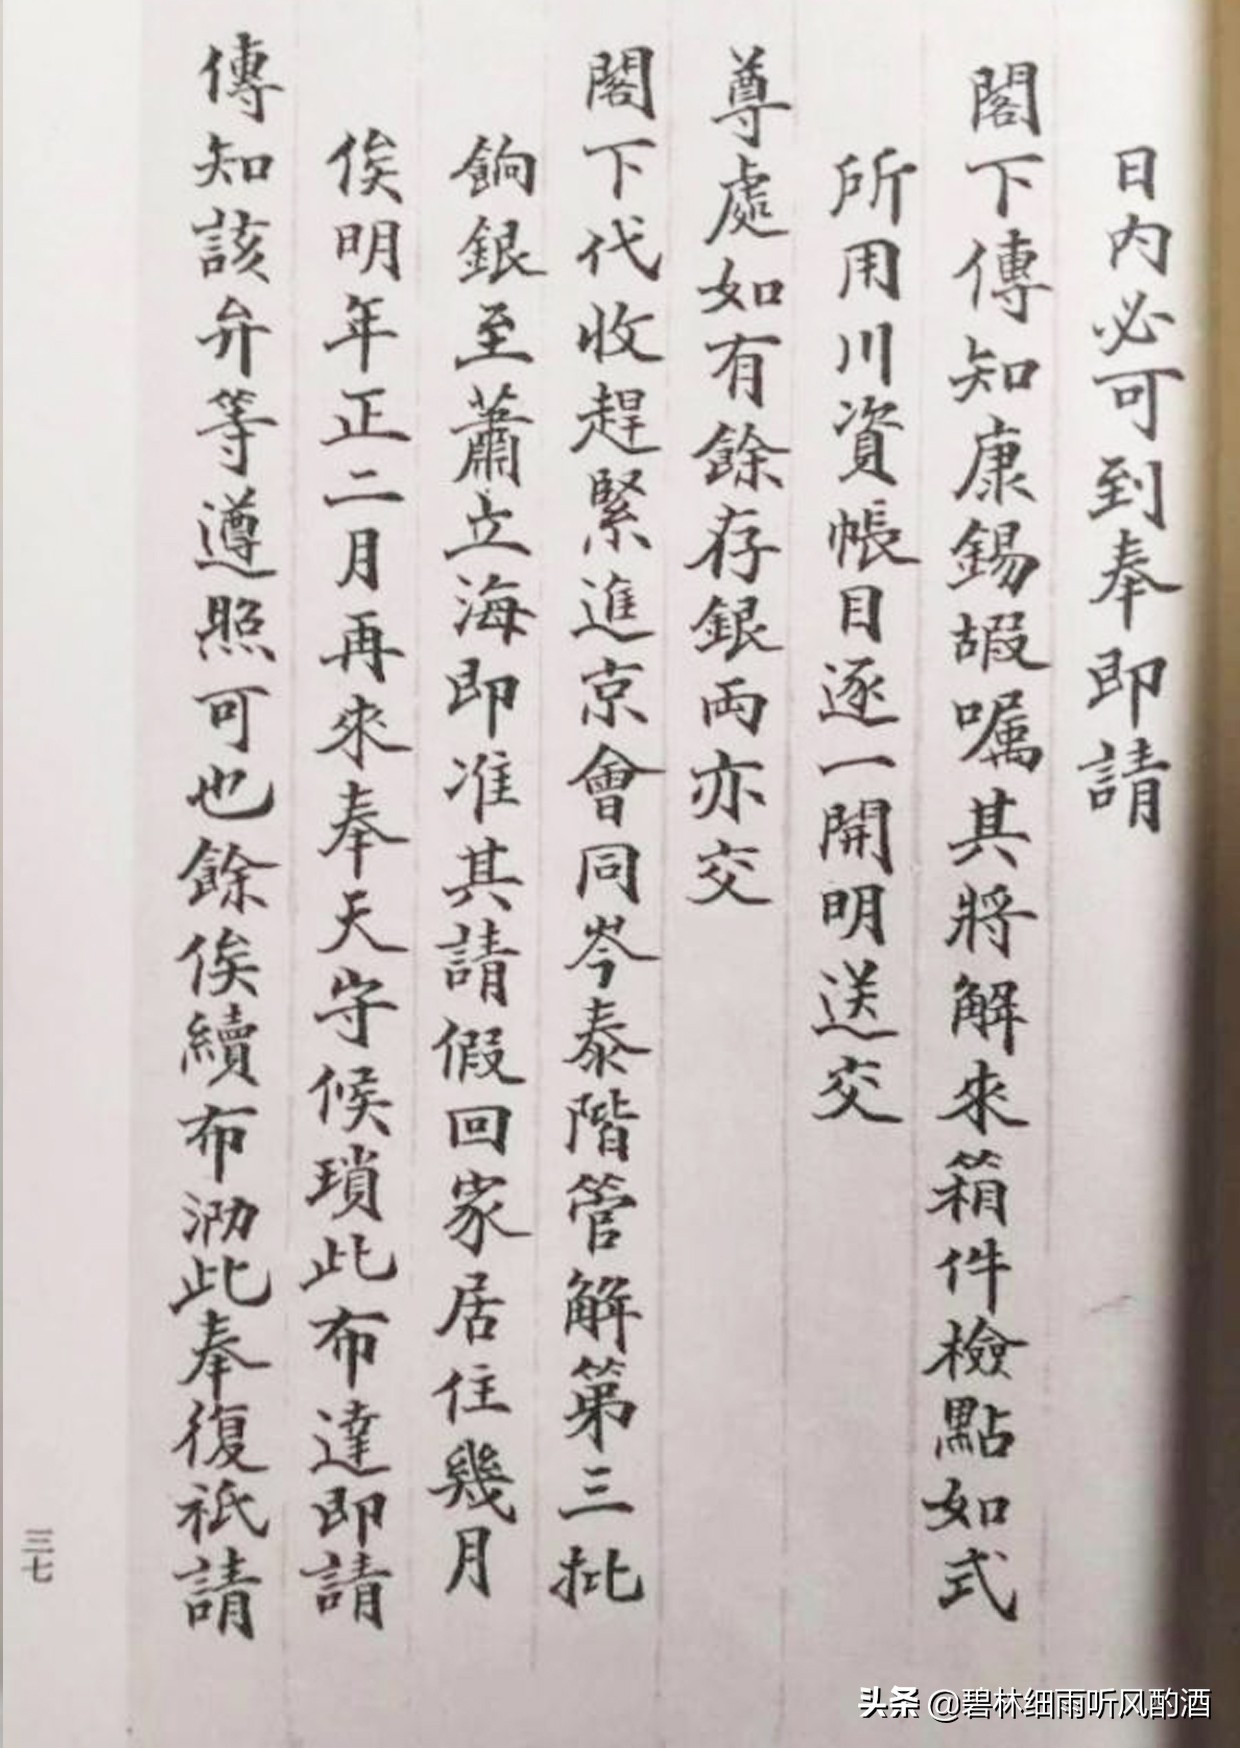 日内必可到奉即請
閣下傳知康錫嘏囑其將解來箱件檢點如式
所用川資帳目逐一開明送交
尊處如有餘存銀両亦交
閣下代收趕緊進京會同岑泰階管解第三批
餉銀至蕭立海即准其請假回家居住幾月
俟明年正二月再來奉天守候瑣此布達即請
傳知該弁等遵照可也餘俟續布泐此奉復祗請
三七
头条 @碧林细雨听风酌酒